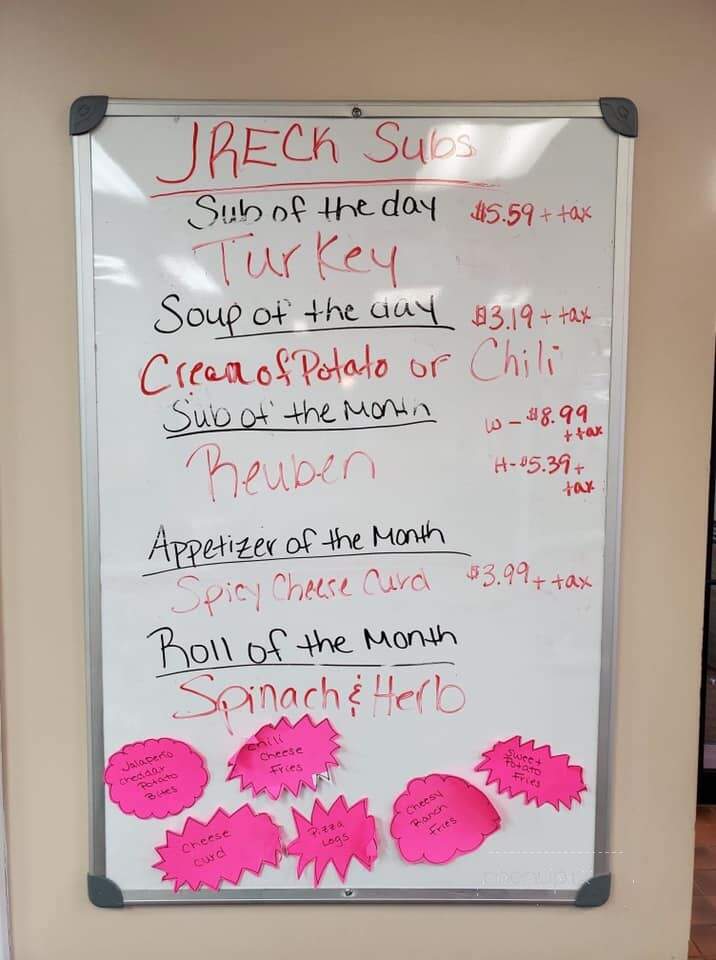 JRECK Subs
Sub of the day $5.59 + tax
Turkey
Soup of the day $3.19 + tax
Cream of Potato or Chili
Sub of the Month W - $8.99 + tax
Reuben H - $5.39 + tax
Appetizer of the Month
Spicy Cheese Curd $3.99 + tax
Roll of the Month
Spinach & Herb
Jalapeño
Cheddar
Potato
Bites
Chili
Cheese
Fries
Sweet
Potato
Fries
Cheese
Curd
Pizza
Logs
Cheesy
Ranch
Fries